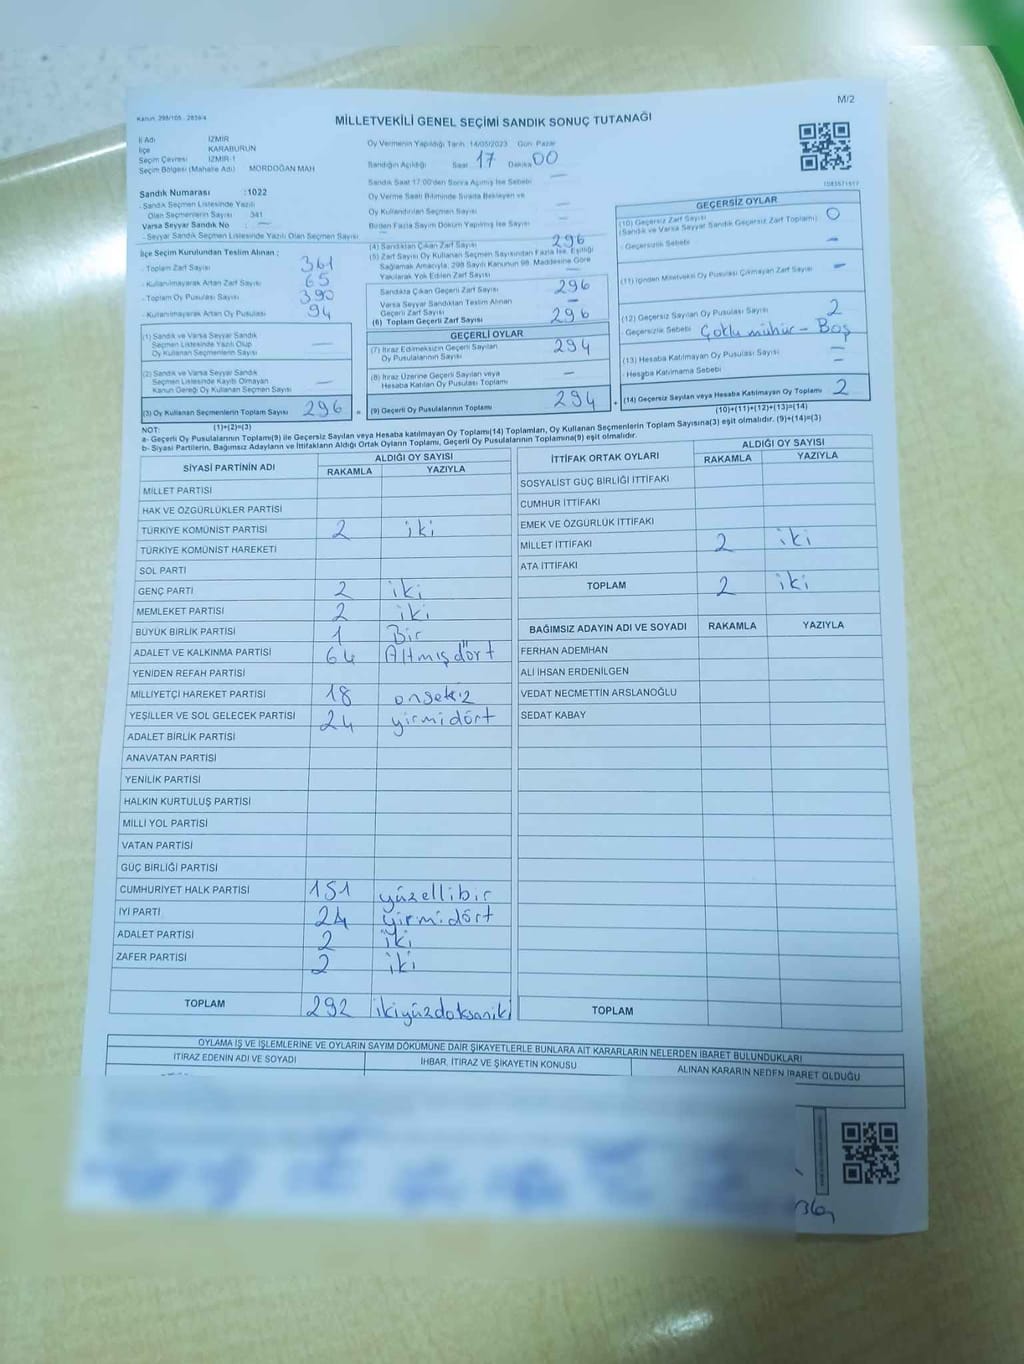 M/2
Kanun: 298/105 2839/4
MİLLETVEKİLİ GENEL SEÇİMİ SANDIK SONUÇ TUTANAĞI
İl Adı İZMİR
İlçe KARABURUN
Seçim Çevresi İZMİR-1
Seçim Bölgesi (Mahalle Adı) MORDOĞAN MAH
Oy Vermenin Yapıldığı Tarih: 14/05/2023 Gün: Pazar
Sandığın Açıldığı Saat 17 Dakika 00
Sandık Saat 17:00'den Sonra Açılmış İse Sebebi —
Oy Verme Saati Bitiminde Sırada Bekleyen ve
Oy Kullandırılan Seçmen Sayısı —
Birden Fazla Sayım Döküm Yapılmış İse Sayısı —
Sandık Numarası :1022
- Sandık Seçmen Listesinde Yazılı
Olan Seçmenlerin Sayısı 341
Varsa Seyyar Sandık No —
- Seyyar Sandık Seçmen Listesinde Yazılı Olan Seçmen Sayısı
İlçe Seçim Kurulundan Teslim Alınan :
- Toplam Zarf Sayısı 361
- Kullanılmayarak Artan Zarf Sayısı 65
- Toplam Oy Pusulası Sayısı 390
- Kullanılmayarak Artan Oy Pusulası 94
(1) Sandık ve Varsa Seyyar Sandık
Seçmen Listesinde Yazılı Olup
Oy Kullanan Seçmenlerin Sayısı —
(2) Sandık ve Varsa Seyyar Sandık
Seçmen Listesinde Kayıtlı Olmayan
Kanun Gereği Oy Kullanan Seçmen Sayısı —
(3) Oy Kullanan Seçmenlerin Toplam Sayısı 296
(1)+(2)=(3)
(4) Sandıktan Çıkan Zarf Sayısı 296
(5) Zarf Sayısı Oy Kullanan Seçmen Sayısından Fazla İse, Eşitliği
Sağlamak Amacıyla, 298 Sayılı Kanunun 98. Maddesine Göre
Yakılarak Yok Edilen Zarf Sayısı —
Sandıkta Çıkan Geçerli Zarf Sayısı 296
Varsa Seyyar Sandıktan Teslim Alınan
Geçerli Zarf Sayısı —
(6) Toplam Geçerli Zarf Sayısı 296
GEÇERLİ OYLAR
(7) İtiraz Edilmeksizin Geçerli Sayılan
Oy Pusulalarının Sayısı 294
(8) İtiraz Üzerine Geçerli Sayılan veya
Hesaba Katılan Oy Pusulası Toplamı —
(9) Geçerli Oy Pusulalarının Toplamı 294
GEÇERSİZ OYLAR
(10) Geçersiz Zarf Sayısı 0
(Sandık ve Varsa Seyyar Sandık Geçersiz Zarf Toplamı)
- Geçersizlik Sebebi —
(11) İçinden Milletvekili Oy Pusulası Çıkmayan Zarf Sayısı —
(12) Geçersiz Sayılan Oy Pusulası Sayısı 2
Geçersizlik Sebebi Çoklu mühür - Boş
(13) Hesaba Katılmayan Oy Pusulası Sayısı —
- Hesaba Katılmama Sebebi —
(14) Geçersiz Sayılan veya Hesaba Katılmayan Oy Toplamı 2
(10)+(11)+(12)+(13)=(14)
NOT:
a- Geçerli Oy Pusulalarının Toplamı(9) ile Geçersiz Sayılan veya Hesaba katılmayan Oy Toplamı(14) Toplamları, Oy Kullanan Seçmenlerin Toplam Sayısına(3) eşit olmalıdır. (9)+(14)=(3)
b- Siyasi Partilerin, Bağımsız Adayların ve İttifakların Aldığı Ortak Oyların Toplamı, Geçerli Oy Pusulalarının Toplamına(9) eşit olmalıdır.
SİYASİ PARTİNİN ADI ALDIĞI OY SAYISI
RAKAMLA YAZIYLA
MİLLET PARTİSİ
HAK VE ÖZGÜRLÜKLER PARTİSİ
TÜRKİYE KOMÜNİST PARTİSİ 2 iki
TÜRKİYE KOMÜNİST HAREKETİ
SOL PARTİ
GENÇ PARTİ 2 iki
MEMLEKET PARTİSİ 2 iki
BÜYÜK BİRLİK PARTİSİ 1 Bir
ADALET VE KALKINMA PARTİSİ 64 Altmışdört
YENİDEN REFAH PARTİSİ
MİLLİYETÇİ HAREKET PARTİSİ 18 onsekiz
YEŞİLLER VE SOL GELECEK PARTİSİ 24 yirmidört
ADALET BİRLİK PARTİSİ
ANAVATAN PARTİSİ
YENİLİK PARTİSİ
HALKIN KURTULUŞ PARTİSİ
MİLLİ YOL PARTİSİ
VATAN PARTİSİ
GÜÇ BİRLİĞİ PARTİSİ
CUMHURİYET HALK PARTİSİ 151 yüzellibir
İYİ PARTİ 24 yirmidört
ADALET PARTİSİ 2 iki
ZAFER PARTİSİ 2 iki
TOPLAM 292 ikiyüzdoksaniki
İTTİFAK ORTAK OYLARI ALDIĞI OY SAYISI
RAKAMLA YAZIYLA
SOSYALİST GÜÇ BİRLİĞİ İTTİFAKI
CUMHUR İTTİFAKI
EMEK VE ÖZGÜRLÜK İTTİFAKI
MİLLET İTTİFAKI 2 iki
ATA İTTİFAKI
TOPLAM 2 iki
BAĞIMSIZ ADAYIN ADI VE SOYADI RAKAMLA YAZIYLA
FERHAN ADEMHAN
ALİ İHSAN ERDENİLGEN
VEDAT NECMETTİN ARSLANOĞLU
SEDAT KABAY
TOPLAM
OYLAMA İŞ VE İŞLEMLERİNE VE OYLARIN SAYIM DÖKÜMÜNE DAİR ŞİKAYETLERLE BUNLARA AİT KARARLARIN NELERDEN İBARET BULUNDUKLARI
İTİRAZ EDENİN ADI VE SOYADI İHBAR, İTİRAZ VE ŞİKAYETİN KONUSU ALINAN KARARIN NEDEN İBARET OLDUĞU